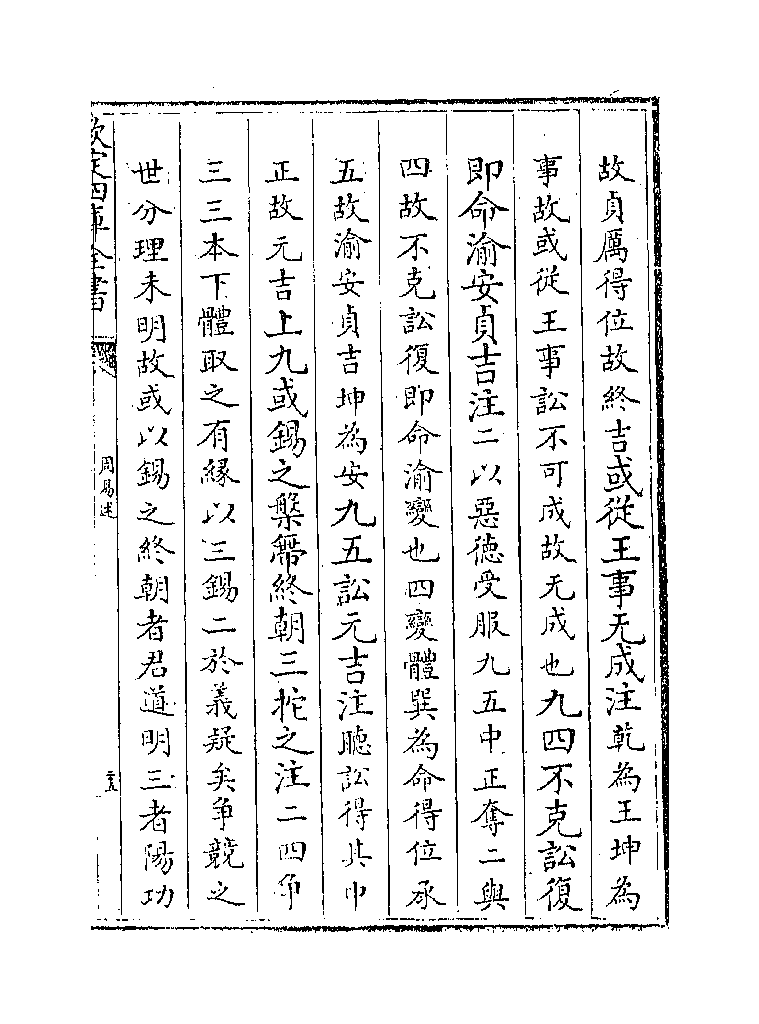 故貞厲得位故終吉或從王事无成注乾為王坤為
事故或從王事訟不可成故无成也九四不克訟復
即命渝安貞吉注二以惡德受服九五中正奪二與
四故不克訟復即命渝變也四變體巽為命得位承
五故渝安貞吉坤為安九五訟元吉注聽訟得其中
正故元吉上九或錫之鞶帶終朝三拕之注二四爭
三三本下體取之有緣以三錫二於義疑矣爭競之
世分理未明故或以錫之終朝者君道明三者陽功
欽定四庫全書
周易述